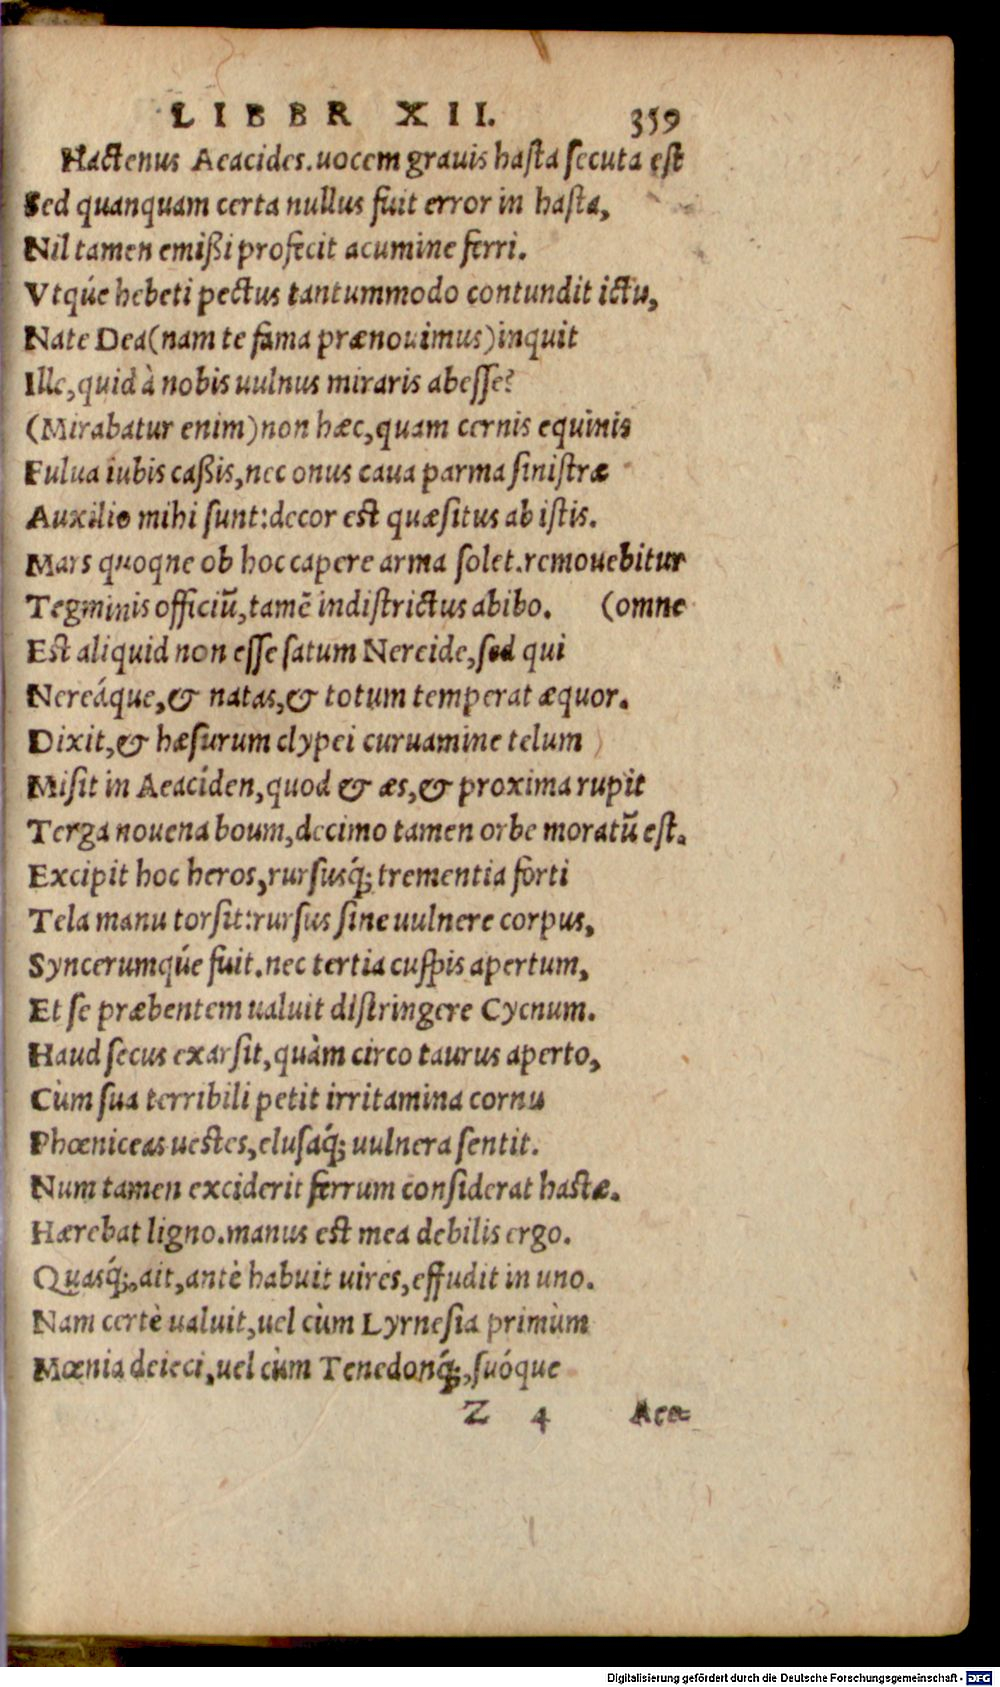 LIBER XII. 359
Hactenus Aeacides.uocem grauis hasta secuta est
Sed quanquam certa nullus fuit error in hasta,
Nil tamen emißi profecit acumine ferri.
Vtq́ue hebeti pectus tantummodo contundit ictu,
Nate Dea(nam te fama prænouimus)inquit
Ille,quid à nobis uulnus miraris abesse?
(Mirabatur enim)non hæc,quam cernis equinis
Fulua iubis caßis,nec onus caua parma sinistræ
Auxilio mihi sunt:decor est quæsitus ab istis.
Mars quoqne ob hoc capere arma solet.remouebitur
Tegminis officiũ,tamẽ indistrictus abibo. (omne
Est aliquid non esse satum Nereide,sed qui
Nereáque,& natas,& totum temperat æquor.
Dixit,& hæsurum clypei curuamine telum
Misit in Aeaciden,quod & æs,& proxima rupit
Terga nouena boum,decimo tamen orbe moratũ est.
Excipit hoc heros,rursusq́; trementia forti
Tela manu torsit:rursus sine uulnere corpus,
Syncerumq́ue fuit.nec tertia cuspis apertum,
Et se præbentem ualuit distringere Cycnum.
Haud secus exarsit,quàm circo taurus aperto,
Cùm sua terribili petit irritamina cornu
Phœniceas uestes,elusaq́; uulnera sentit.
Num tamen exciderit ferrum considerat hastæ.
Hærebat ligno.manus est mea debilis ergo.
Quasq́;,ait,antè habuit uires,effudit in uno.
Nam certè ualuit,uel cùm Lyrnesia primùm
Mœnia deieci,uel cùm Tenedonq́;,suóque
Z 4 Aea-
Digitalisierung gefördert durch die Deutsche Forschungsgemeinschaft - DFG